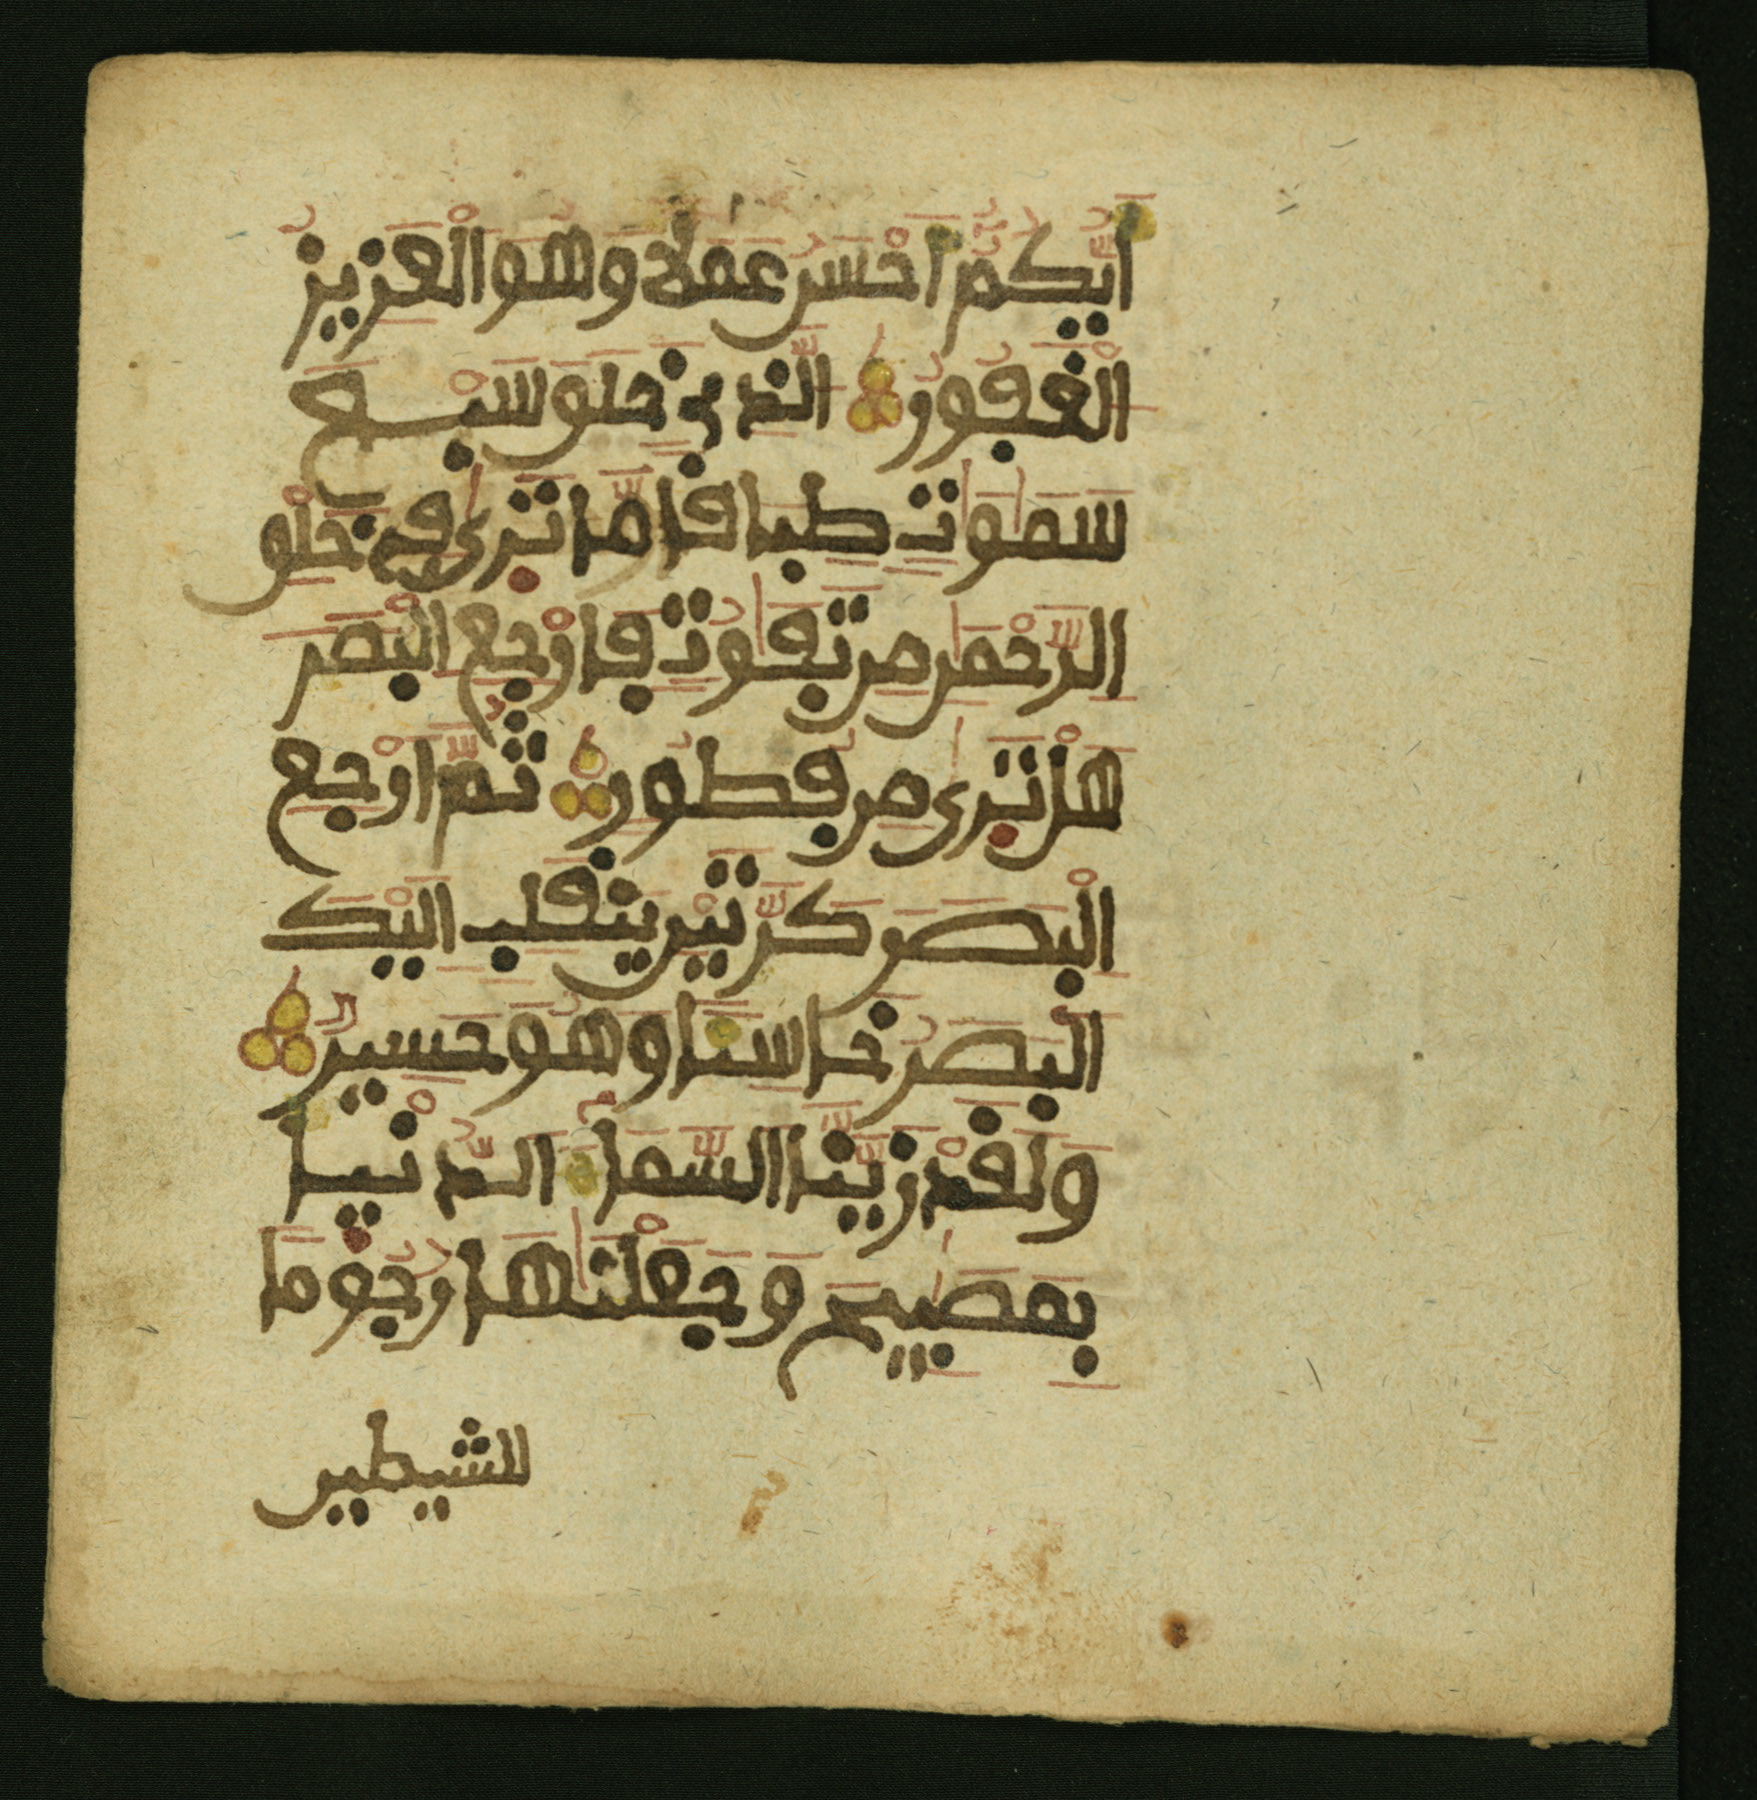 أَيُّكُمُ أَحْسَنُ عَمَلًا وَهُوَ الْعَزِيزُ
الْغَفُورُ الَّذِي خَلَقَ سَبْعَ
سَمَٰوَٰتٍ طِبَاقًا مَّا تَرَىٰ فِي خَلْقِ
الرَّحْمَٰنِ مِن تَفَٰوُتٍ فَارْجِعِ الْبَصَرَ
هَلْ تَرَىٰ مِن فُطُورٍ ثُمَّ ارْجِعِ
الْبَصَرَ كَرَّتَيْنِ يَنقَلِبْ إِلَيْكَ
الْبَصَرُ خَاسِئًا وَهُوَ حَسِيرٌ
وَلَقَدْ زَيَّنَّا السَّمَاءَ الدُّنْيَا
بِمَصَٰبِيحَ وَجَعَلْنَٰهَا رُجُومًا
للشيطين